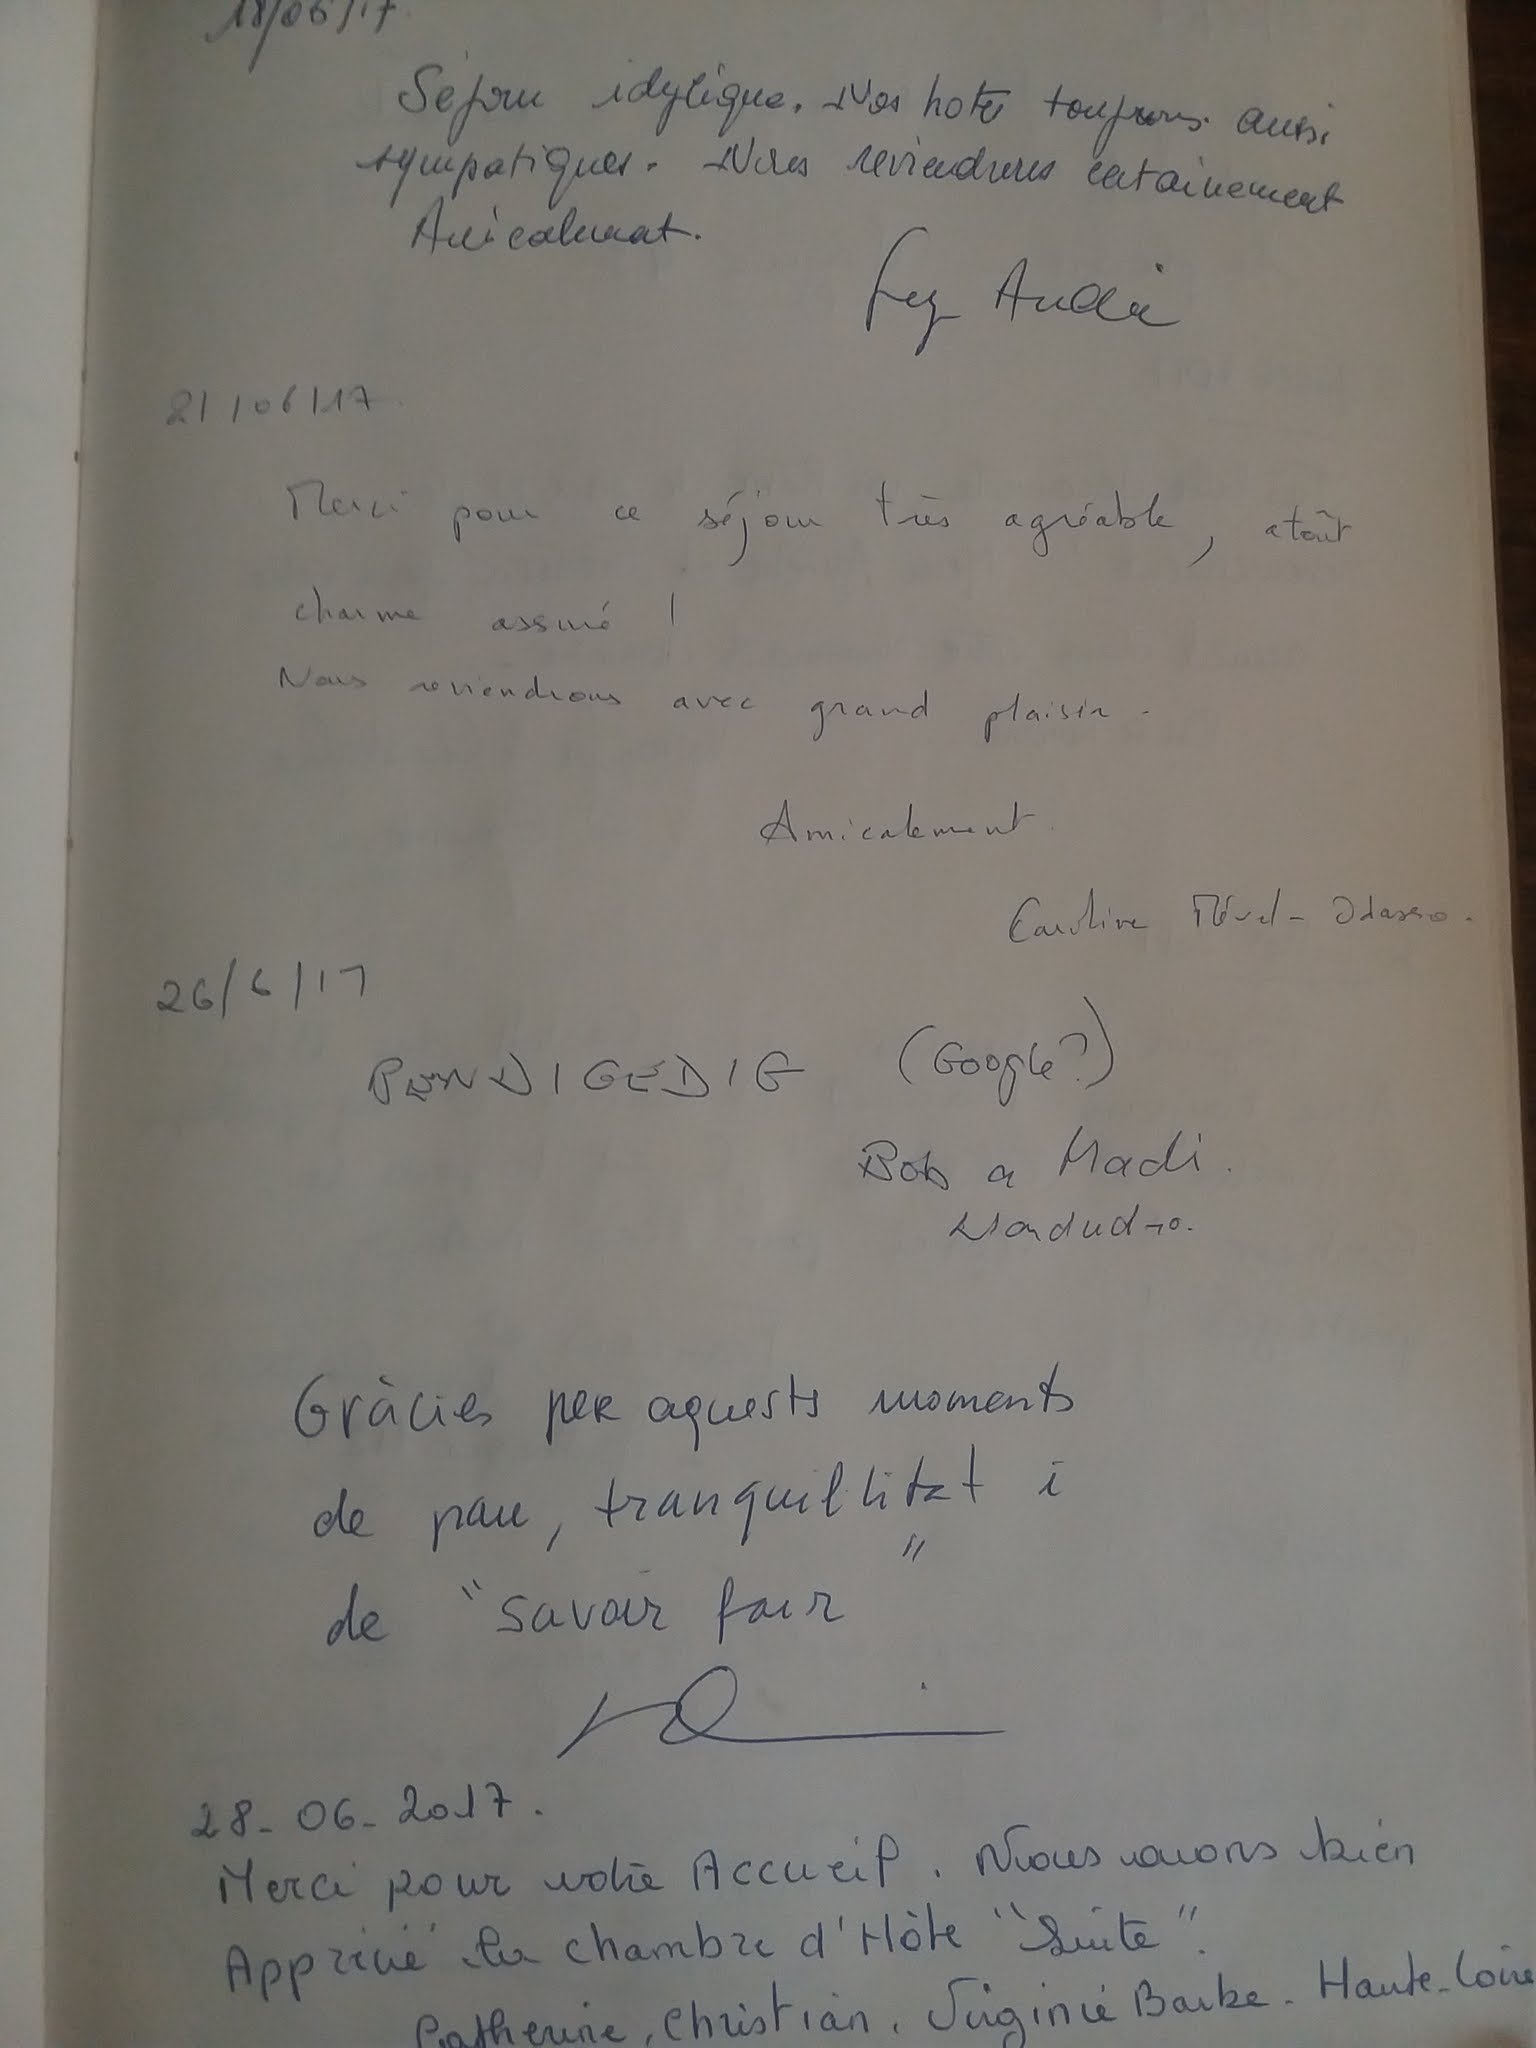 18/06/17
Séjour idylique. Nos hote toujours aussi
sympatiques. Nous reviendrons certainement
Amicalement.
André
21/06/17
Merci pour ce séjour très agréable, atoût
charme assuré !
Nous reviendrons avec grand plaisir.
Amicalement
Caroline Mével-Odasso.
26/6/17
BENDIGEDIG (Google?)
Bob a Madi.
Gràcies per aquests moments
de pau, tranquil·litat i
de "savoir fair"
28-06-2017.
Merci pour votre Accueil. Nous avons bien
Apprécié la chambre d'Hôte "Suite".
Catherine, Christian, Virginie Barke. Haute-Loire